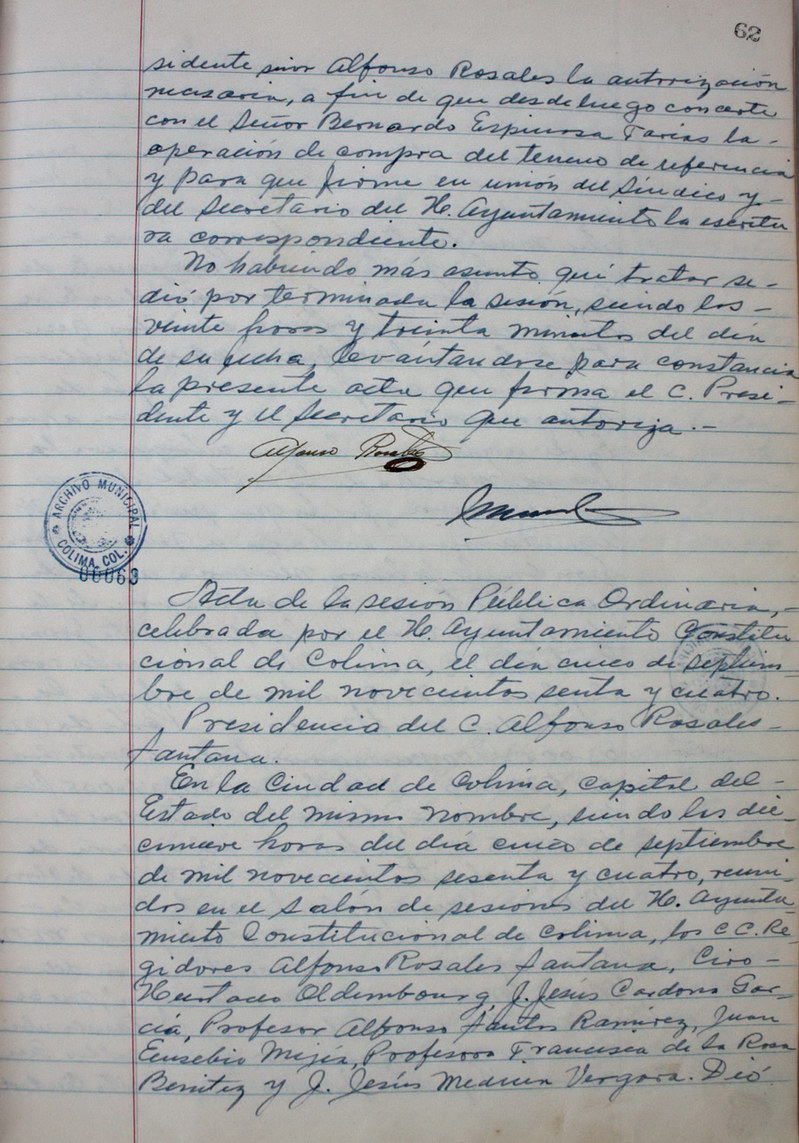 62
sidente señor Alfonso Rosales la autorización
necesaria, a fin de que desde luego concerte
con el Señor Bernardo Espinosa Farías la-
operación de compra del terreno de referencia
y para que firme en unión del Síndico y-
del Secretario del H. Ayuntamiento la escritu
ra correspondiente.
No habiendo más asunto qué tratar se-
dió por terminada la sesión, siendo las-
veinte horas y treinta minutos del día
de su fecha, levántandose para constancia
la presente acta que firma el C. Presi-
dente y el Secretario que autoriza.-
Alfonso Rosales
ARCHIVO MUNICIPAL
COLIMA, COL.
00063
Acta de la sesión Pública Ordinaria,-
celebrada por el H. Ayuntamiento Constitu
cional de Colima, el día cinco de septiem
bre de mil novecientos senta y cuatro.
Presidencia del C. Alfonso Rosales-
Santana.
En la Ciudad de Colima, capital del-
Estado del mismo nombre, siendo las die-
cinueve horas del día cinco de septiembre
de mil novecientos sesenta y cuatro, reuni-
dos en el Salón de sesiones del H. Ayunta-
miento Constitucional de Colima, los CC. Re-
gidores Alfonso Rosales Santana, Ciro-
Hurtado Oldembourg, J. Jesús Cardona Gar-
cía, Profesor Alfonso Santos Ramírez, Juan
Eusebio Mejía, Profesora Francisca de la Rosa
Benítez y J. Jesús Medina Vergara. Dió